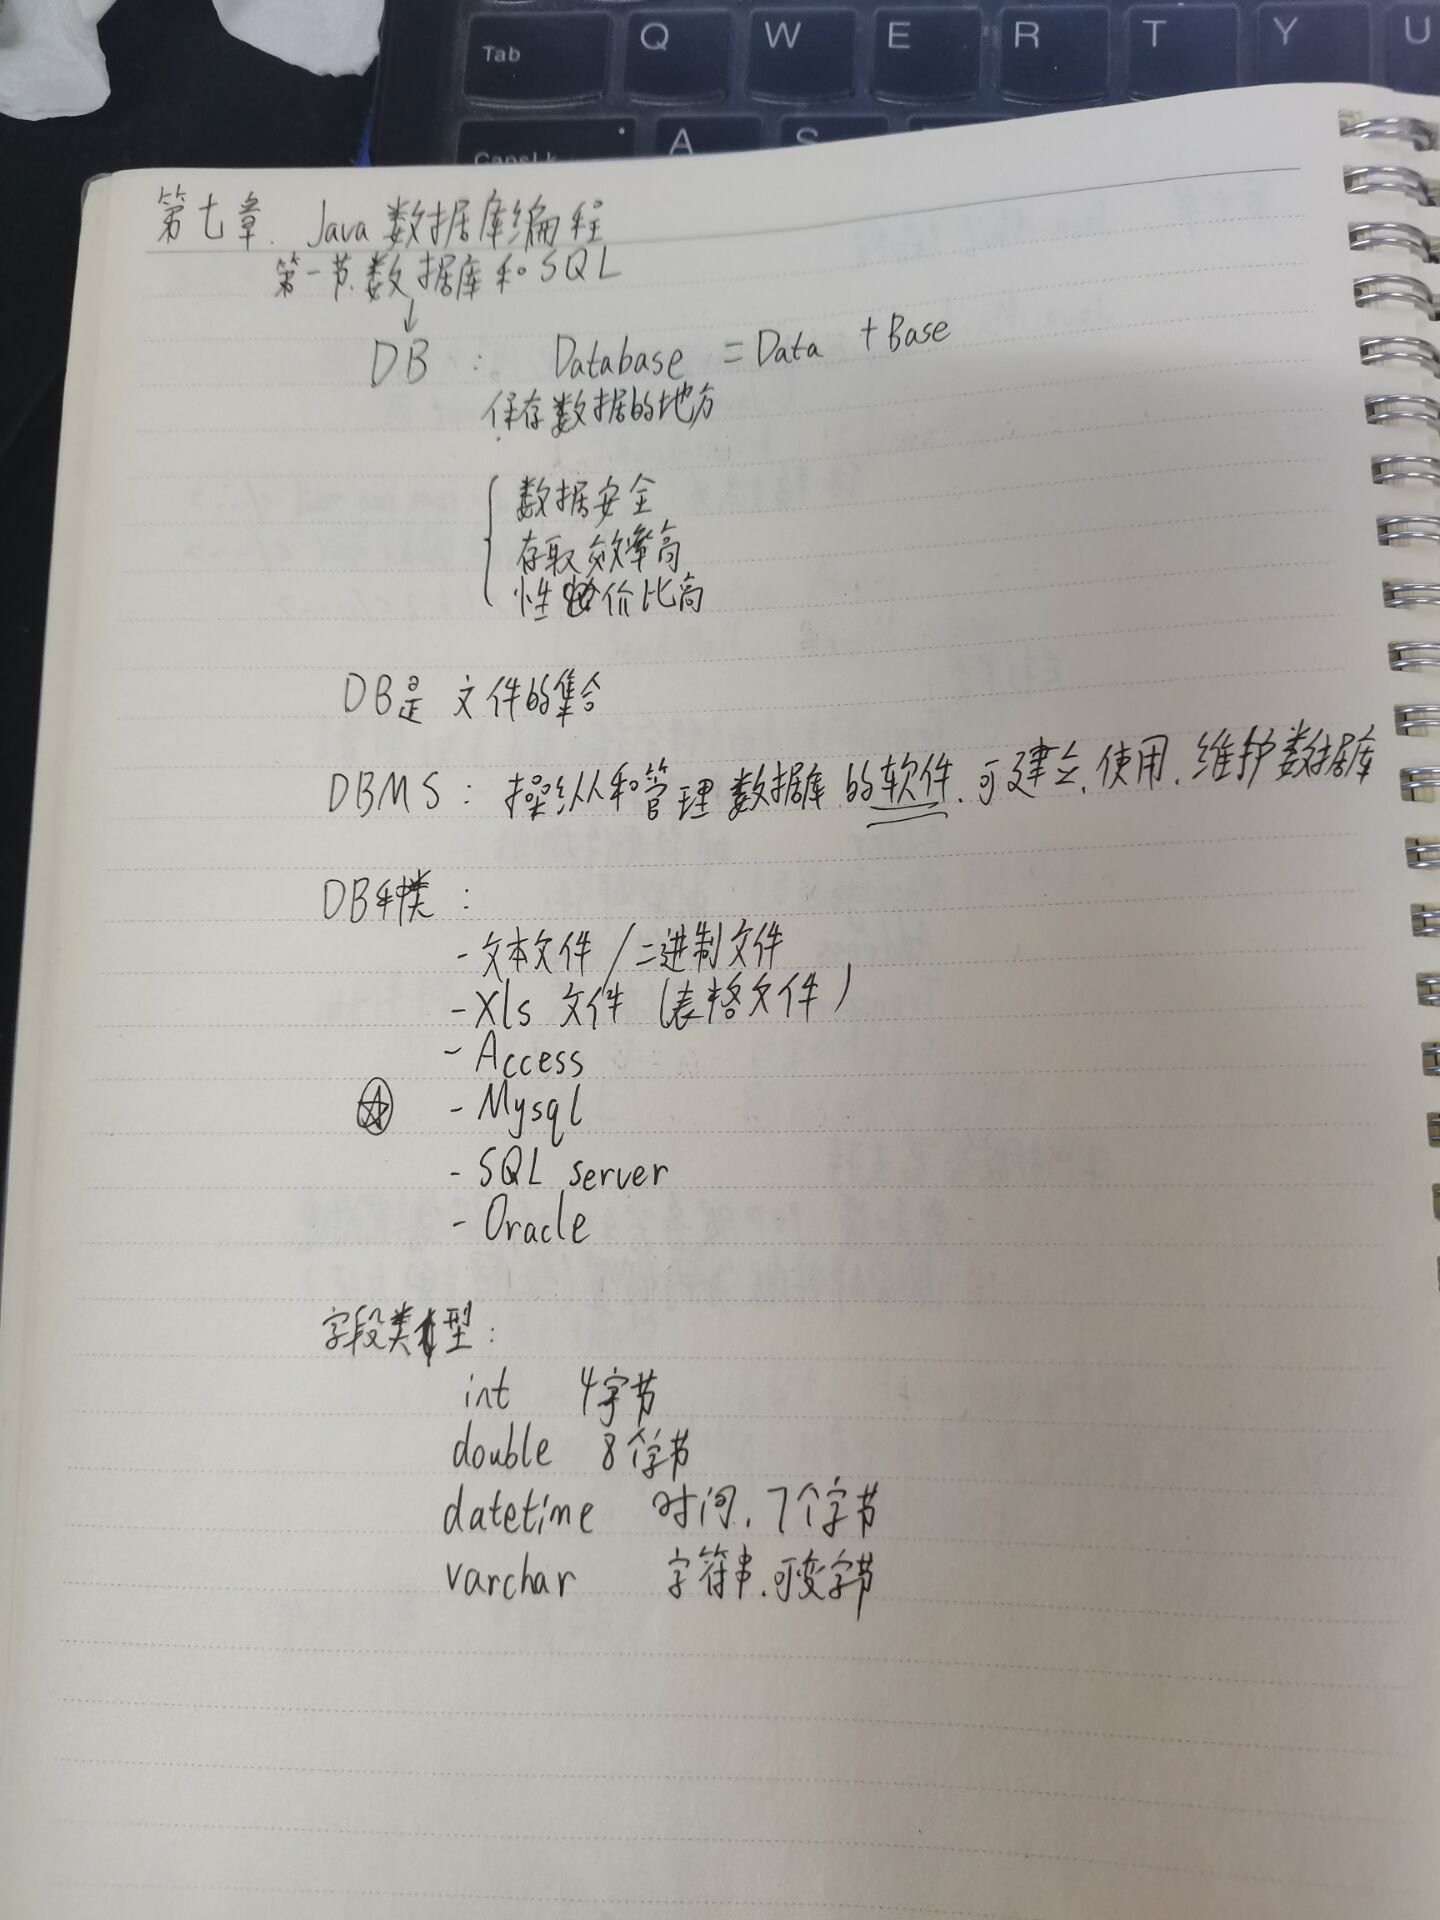 Tab Q W E R T Y U
CapsLk A S
第七章. Java 数据库编程
第一节. 数据库和SQL
↓
DB : Database = Data + Base
保存数据的地方
数据安全
存取效率高
性价比高
DB是 文件的集合
DBMS : 操纵和管理数据库的软件.可建立.使用.维护数据库
DB种类 :
- 文本文件 / 二进制文件
- Xls 文件 (表格文件)
- Access
- Mysql
- SQL server
- Oracle
字段类型 :
int 4字节
double 8个字节
datetime 时间. 7个字节
varchar 字符串.可变字节